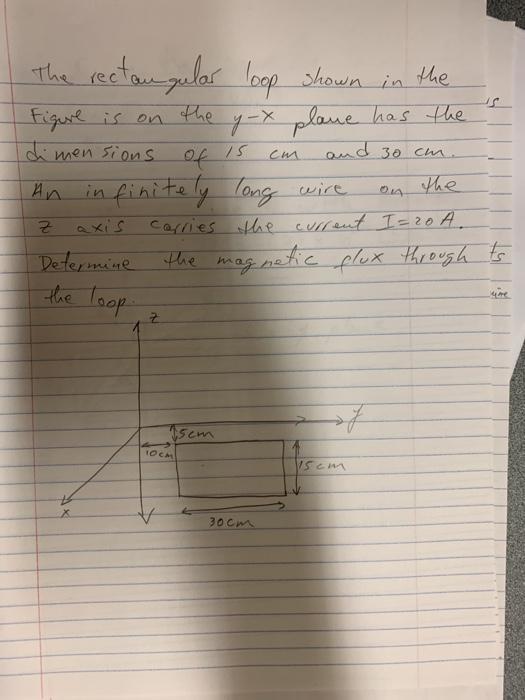 The rectangular loop shown in the
Figure is on the y-x plane has the
dimensions of 15 cm and 30 cm.
An infinitely long wire on the
z axis carries the current I=20A.
Determine the magnetic flux through
the loop.
is
ts
z
y
5cm
10cm
15cm
x
30cm